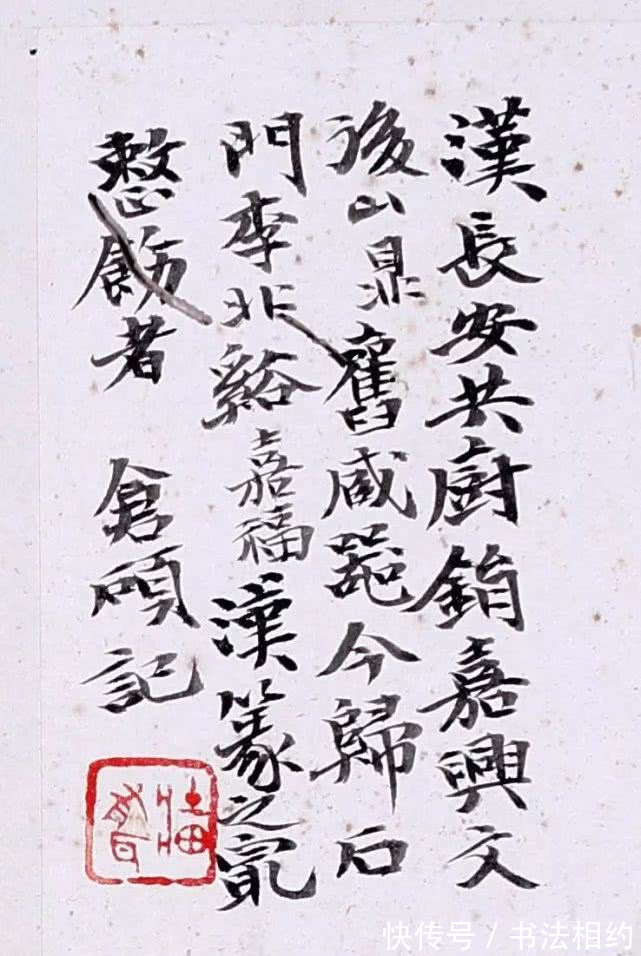 漢長安共廚鋗嘉興文
後山鼎舊臧器今歸石
門李北谿嘉福漢篆之㝡
整飭者 倉碩記
快传号 / 书法相约